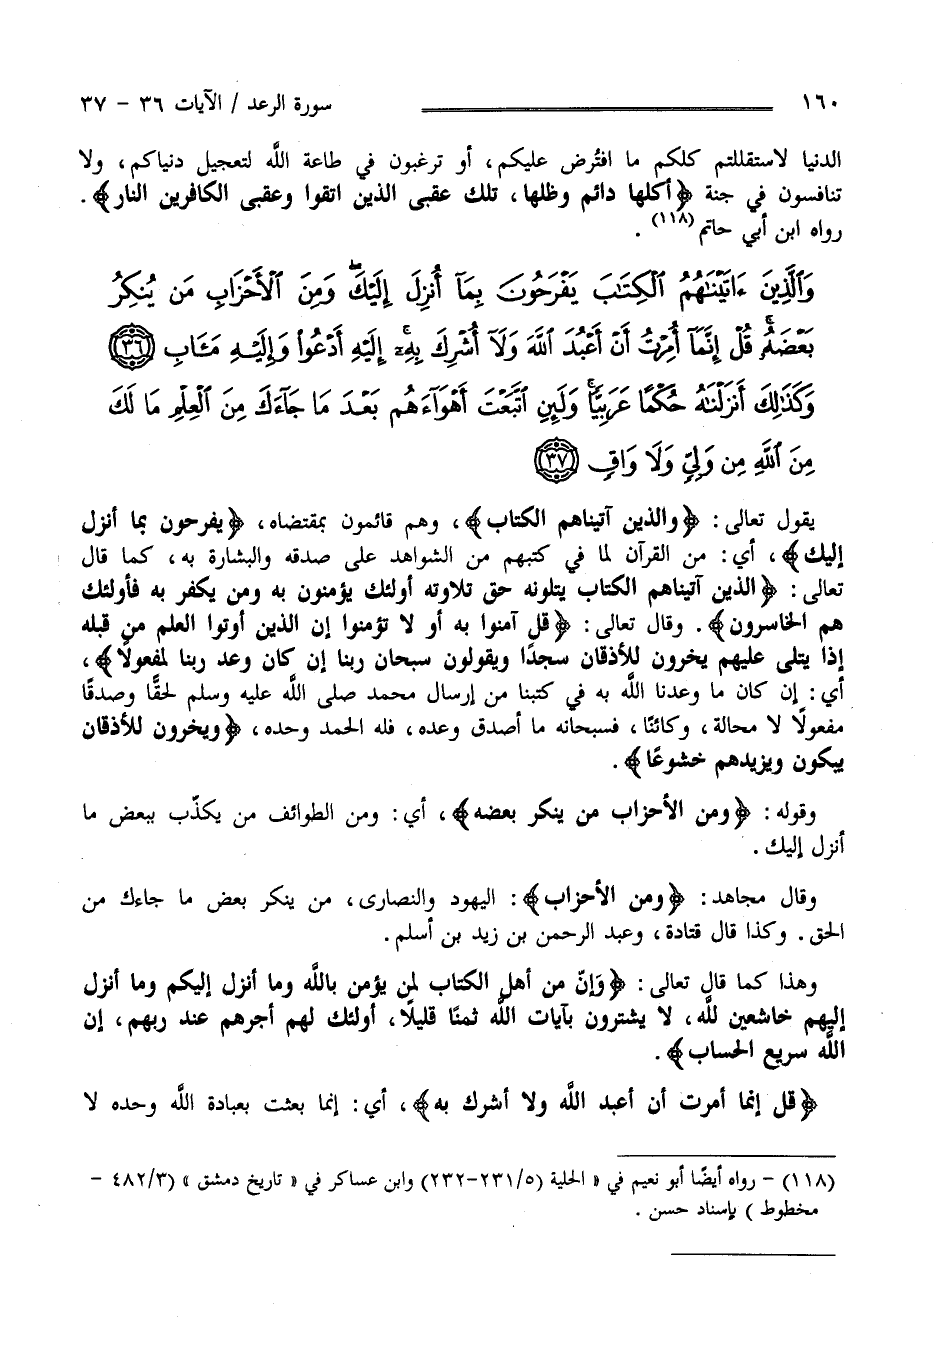 ١٦٠ سورة الرعد / الآيات ٣٦ - ٣٧
الدنيا لاستقللتم كلكم ما افتُرض عليكم، أو ترغبون في طاعة اللَّه لتعجيل دنياكم، ولا
تنافسون في جنة ﴿أكلها دائم وظلها، تلك عقبى الذين اتقوا وعقبى الكافرين النار﴾.
رواه ابن أبي حاتم(١١٨).
وَٱلَّذِينَ ءَاتَيْنَٰهُمُ ٱلْكِتَٰبَ يَفْرَحُونَ بِمَآ أُنزِلَ إِلَيْكَ ۖ وَمِنَ ٱلْأَحْزَابِ مَن يُنكِرُ
بَعْضَهُۥ ۚ قُلْ إِنَّمَآ أُمِرْتُ أَنْ أَعْبُدَ ٱللَّهَ وَلَآ أُشْرِكَ بِهِۦٓ ۚ إِلَيْهِ أَدْعُواْ وَإِلَيْهِ مَـَٔابِ ﴿٣٦﴾
وَكَذَٰلِكَ أَنزَلْنَٰهُ حُكْمًا عَرَبِيًّا ۚ وَلَئِنِ ٱتَّبَعْتَ أَهْوَآءَهُم بَعْدَ مَا جَآءَكَ مِنَ ٱلْعِلْمِ مَا لَكَ
مِنَ ٱللَّهِ مِن وَلِيٍّ وَلَا وَاقٍ ﴿٣٧﴾
يقول تعالى: ﴿والذين آتيناهم الكتاب﴾، وهم قائمون بمقتضاه، ﴿يفرحون بما أنزل
إليك﴾، أي: من القرآن لما في كتبهم من الشواهد على صدقه والبشارة به، كما قال
تعالى: ﴿الذين آتيناهم الكتاب يتلونه حق تلاوته أولئك يؤمنون به ومن يكفر به فأولئك
هم الخاسرون﴾. وقال تعالى: ﴿قل آمنوا به أو لا تؤمنوا إن الذين أوتوا العلم من قبله
إذا يتلى عليهم يخرون للأذقان سجدًا ويقولون سبحان ربنا إن كان وعد ربنا لمفعولًا﴾،
أي: إن كان ما وعدنا اللَّه به في كتبنا من إرسال محمد صلى اللَّه عليه وسلم لحقًّا وصدقًا
مفعولًا لا محالة، وكائنًا، فسبحانه ما أصدق وعده، فله الحمد وحده، ﴿ويخرون للأذقان
يبكون ويزيدهم خشوعًا﴾.
وقوله: ﴿ومن الأحزاب من ينكر بعضه﴾، أي: ومن الطوائف من يكذّب ببعض ما
أنزل إليك.
وقال مجاهد: ﴿ومن الأحزاب﴾: اليهود والنصارى، من ينكر بعض ما جاءك من
الحق. وكذا قال قتادة، وعبد الرحمن بن زيد بن أسلم.
وهذا كما قال تعالى: ﴿وَإنّ من أهل الكتاب لمن يؤمن باللَّه وما أنزل إليكم وما أنزل
إليهم خاشعين للَّه، لا يشترون بآيات اللَّه ثمنًا قليلًا، أولئك لهم أجرهم عند ربهم، إن
اللَّه سريع الحساب﴾.
﴿قل إنما أمرت أن أعبد اللَّه ولا أشرك به﴾، أي: إنما بعثت بعبادة اللَّه وحده لا
(١١٨) - رواه أيضًا أبو نعيم في « الحلية (٥/٢٣١-٢٣٢) وابن عساكر في « تاريخ دمشق » (٤٨٢/٣ -
مخطوط ) بإسناد حسن .